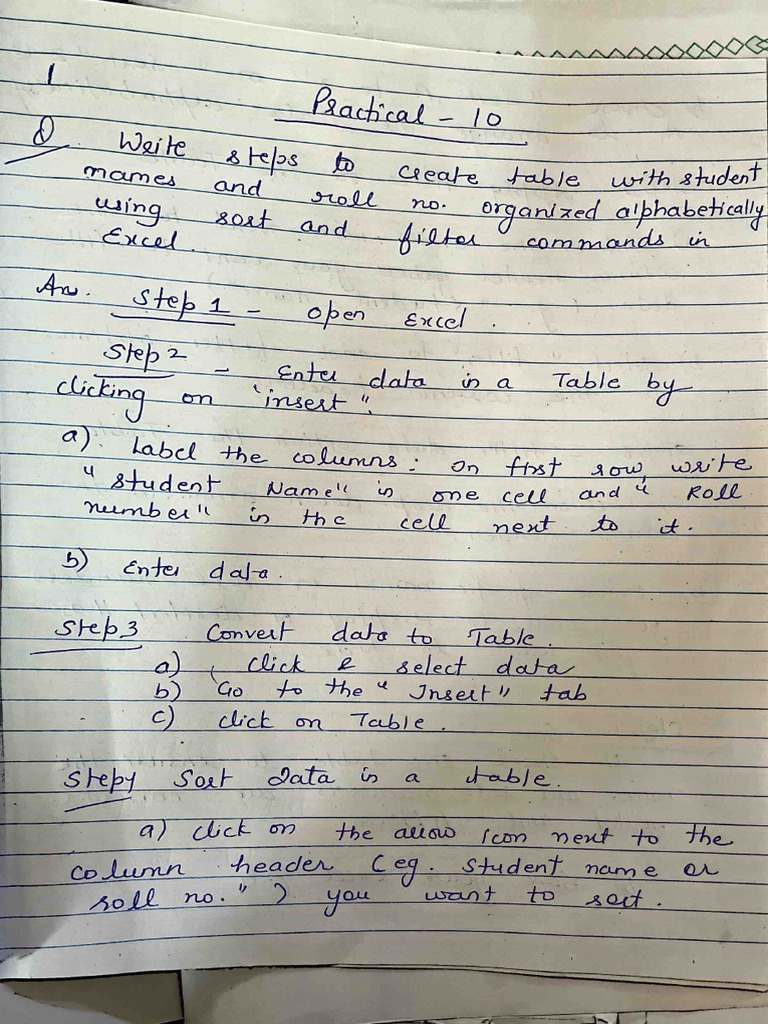 1
Practical - 10
Q. Write steps to create table with student
names and roll no. organized alphabetically
using sort and filter commands in
Excel.
Ans. Step 1 - open Excel.
Step 2 - Enter data in a Table by
clicking on "insert".
a) Label the columns: on first row, write
"student Name" in one cell and "Roll
number" in the cell next to it.
b) Enter data.
Step 3 Convert data to Table.
a) click & select data
b) Go to the "Insert" tab
c) click on Table.
Step 4 Sort data in a table.
a) click on the arrow icon next to the
column header (eg. student name or
roll no.") you want to sort.